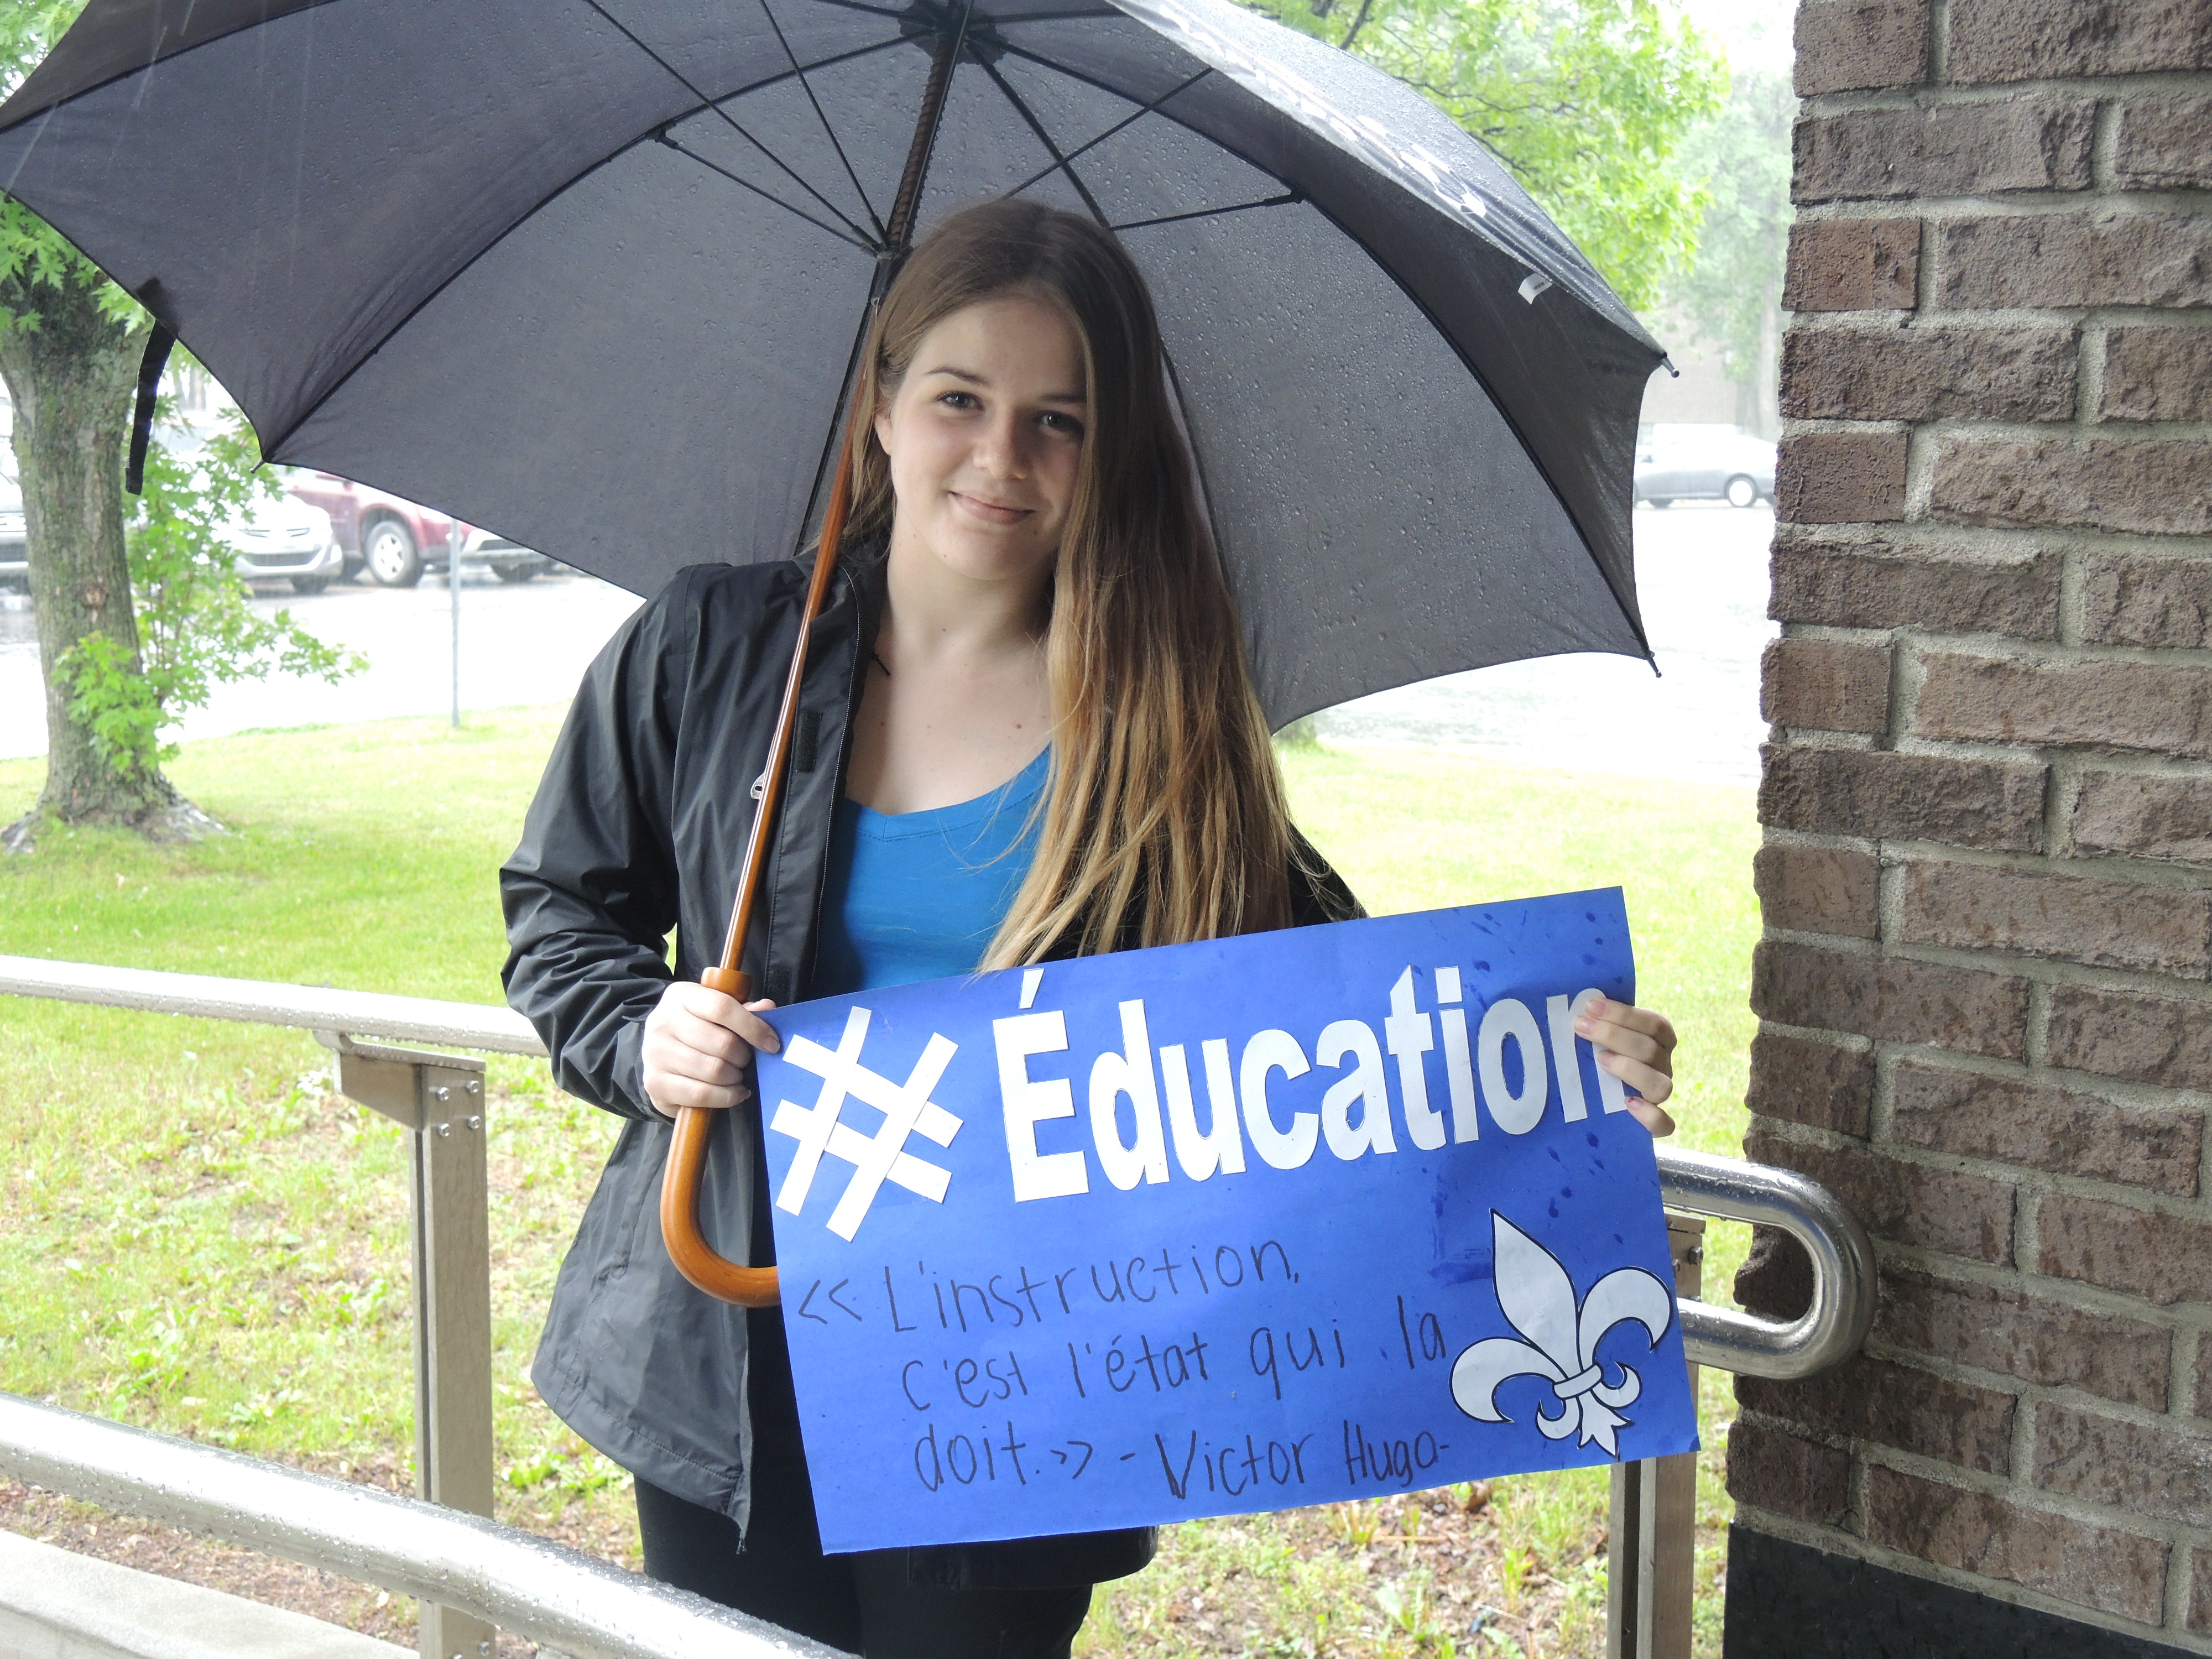 #Éducation
<< L'instruction,
c'est l'état qui la
doit. >> - Victor Hugo-